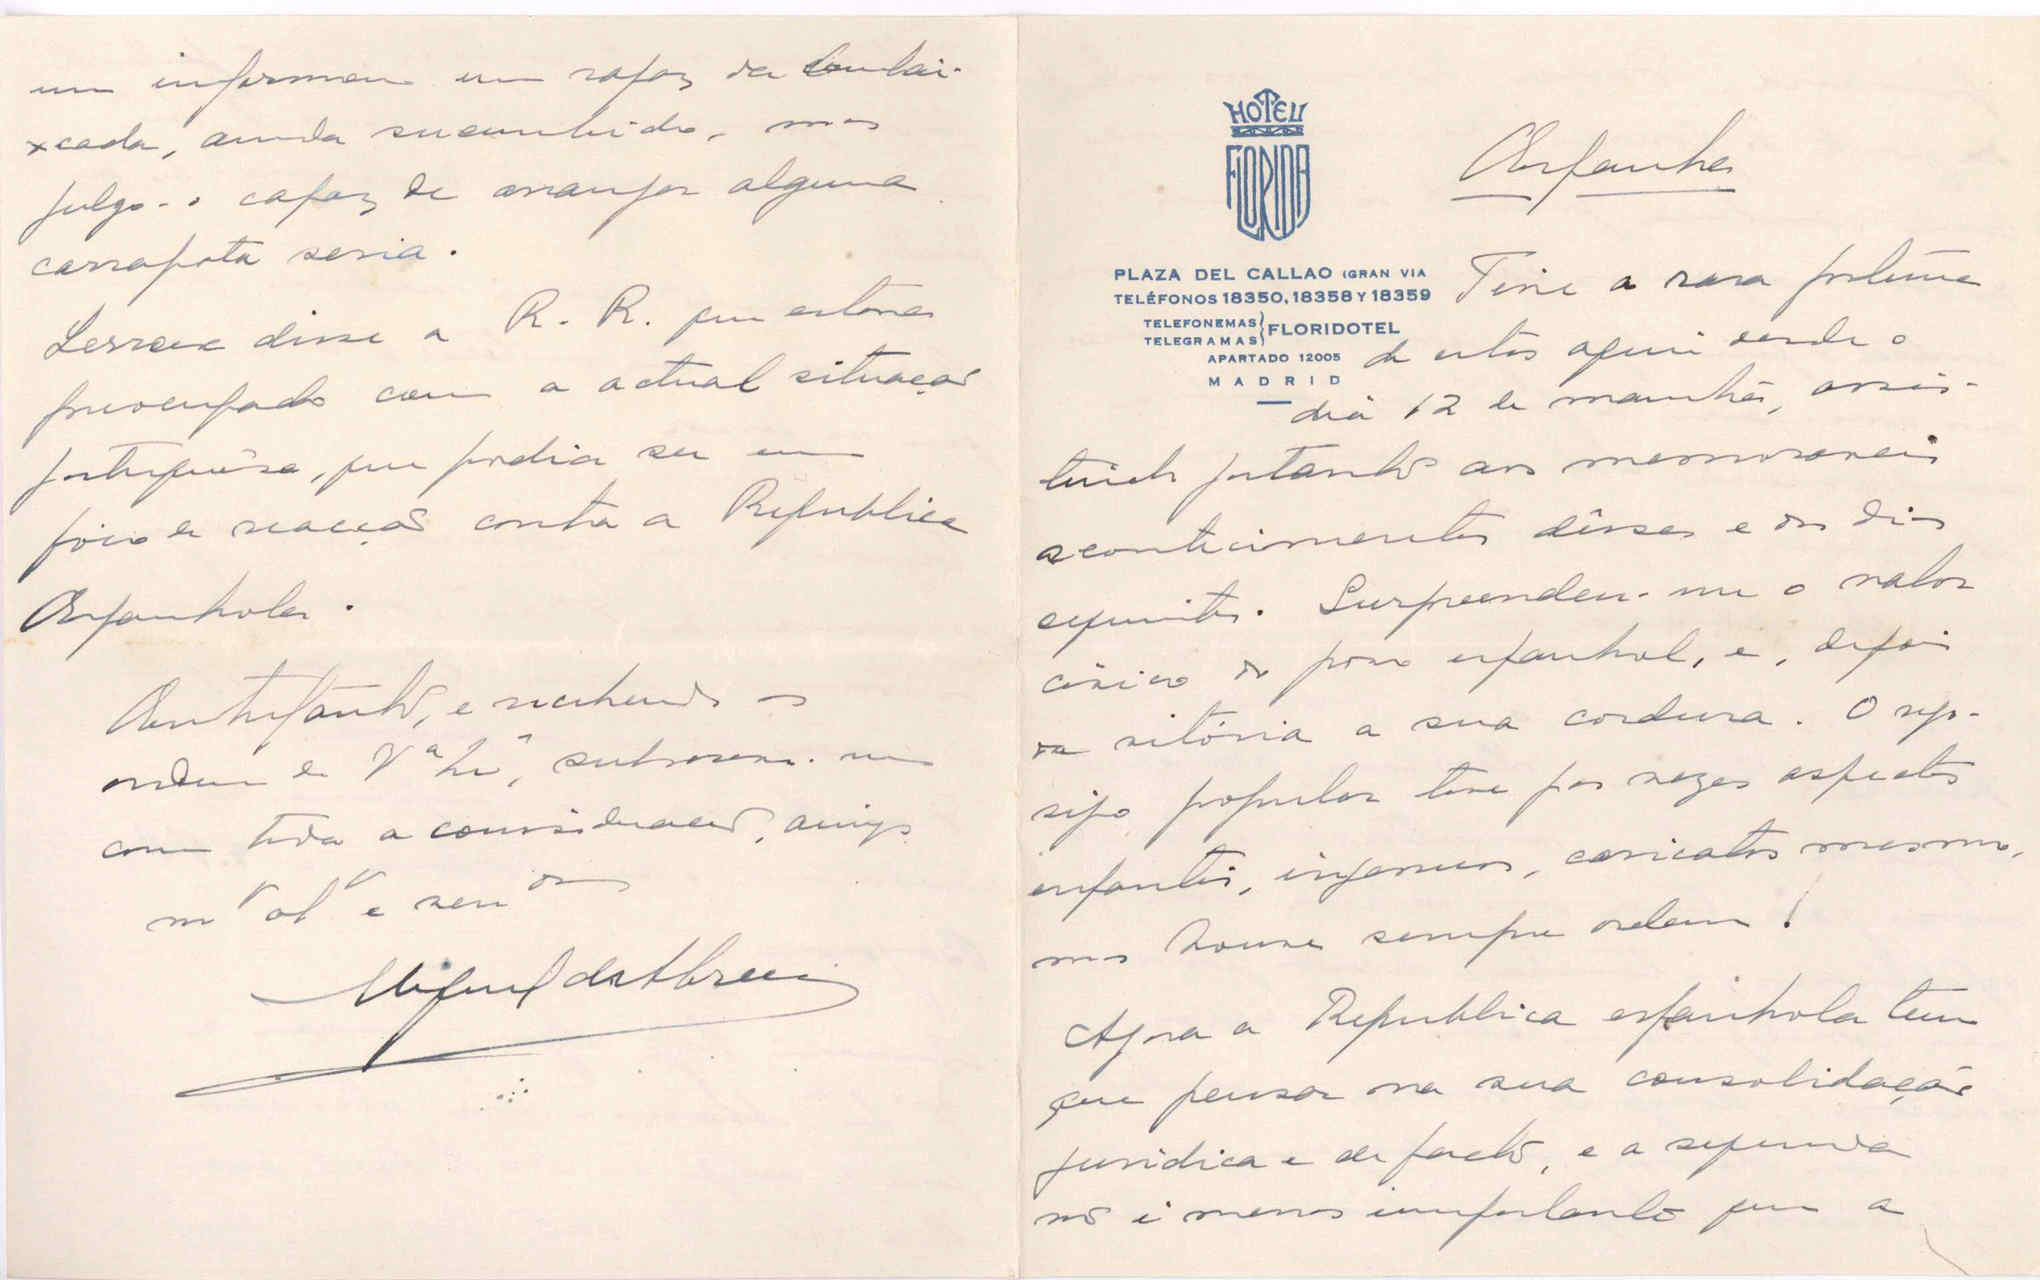 um informou um rapaz da Embai-
xada, ainda sucumbido, mas
julgo-o capaz de arranjar alguma
carrapata seria.
Lerroux disse a R. R. que estava
preocupado com a actual situação
portuguêsa, que podia ser um
fóco de reacção contra a Republica
Espanhola.
Entretanto, e recebendo as
ordens de V.ª Ex.ª, subscrevo-me
com toda a consideração, amigo
m.to ob.do e
Miguel de Abreu
HOTEL
FLORIDA
Espanha
PLAZA DEL CALLAO (GRAN VIA
TELÉFONOS 18350, 18358 Y 18359
TELEFONEMAS
TELEGRAMAS } FLORIDOTEL
APARTADO 12005
MADRID
Tive a rara fortuna
de estar aqui desde o
dia 12 de manhã, assis-
tindo portanto aos memoraveis
acontecimentos dêsse e dos dias
seguintes. Surpreendeu-me o valor
civico do povo espanhol, e, depois
da vitória a sua cordura. O rego-
sijo popular teve por vezes aspectos
infantis, ingenuos, caricatos mesmo,
mas houve sempre ordem!
Agora a Republica espanhola tem
que pensar na sua consolidação
juridica e de facto, e a segunda
não é menos importante que a